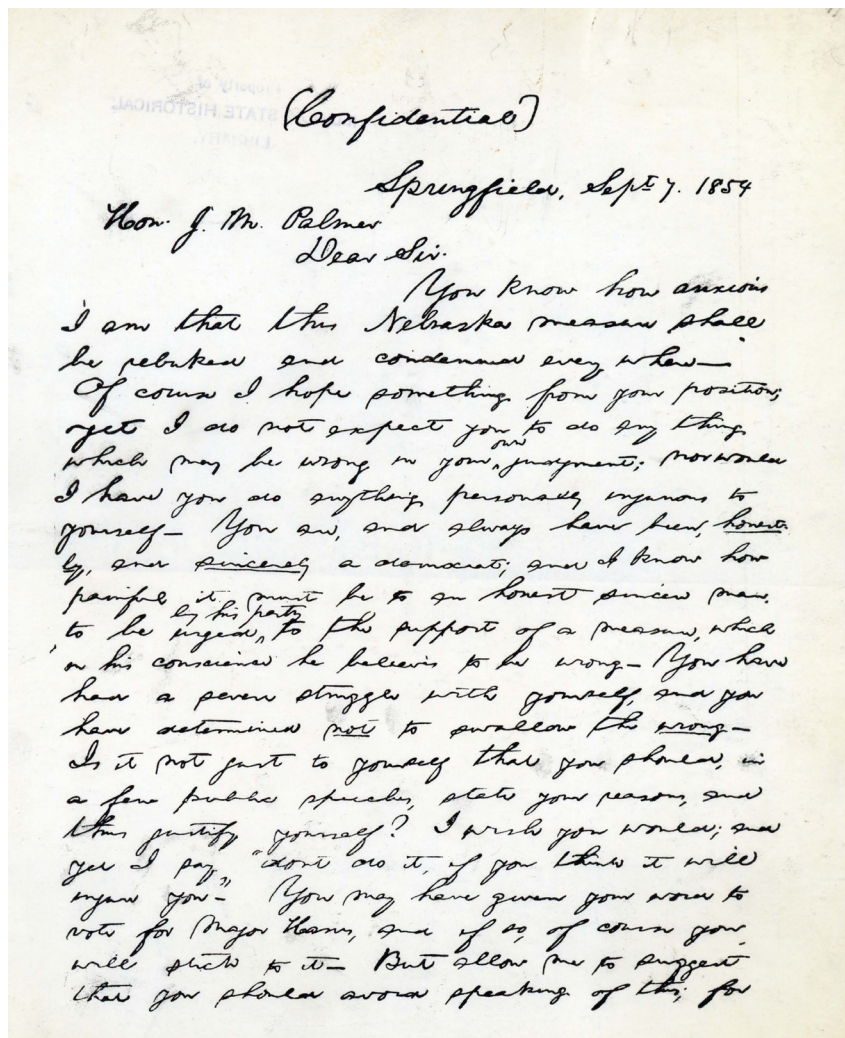 Property of
STATE HISTORICAL
LIBRARY.
(Confidential)
Springfield, Sept. 7. 1854
Hon. J. M. Palmer
Dear Sir.
You know how anxious
I am that this Nebraska measure shall
be rebuked and condemned every where—
Of course I hope something from your position;
yet I do not expect you to do any thing
which may be wrong in your own judgment; nor would
I have you do anything personally injurious to
yourself— You are, and always have been, honest-
ly, and sincerely a democrat; and I know how
painful it must be to an honest sincere man,
to be urged by his party to the support of a measure, which
on his conscience he believes to be wrong— You have
had a severe struggle with yourself, and you
have determined not to swallow the wrong—
Is it not just to yourself that you should, in
a few public speeches, state your reasons, and
thus justify yourself? I wish you would; and
yet I say "dont do it, if you think it will
injure you"— You may have given your word to
vote for Major Harris, and if so, of course you
will stick to it— But allow me to suggest
that you should avoid speaking of this; for